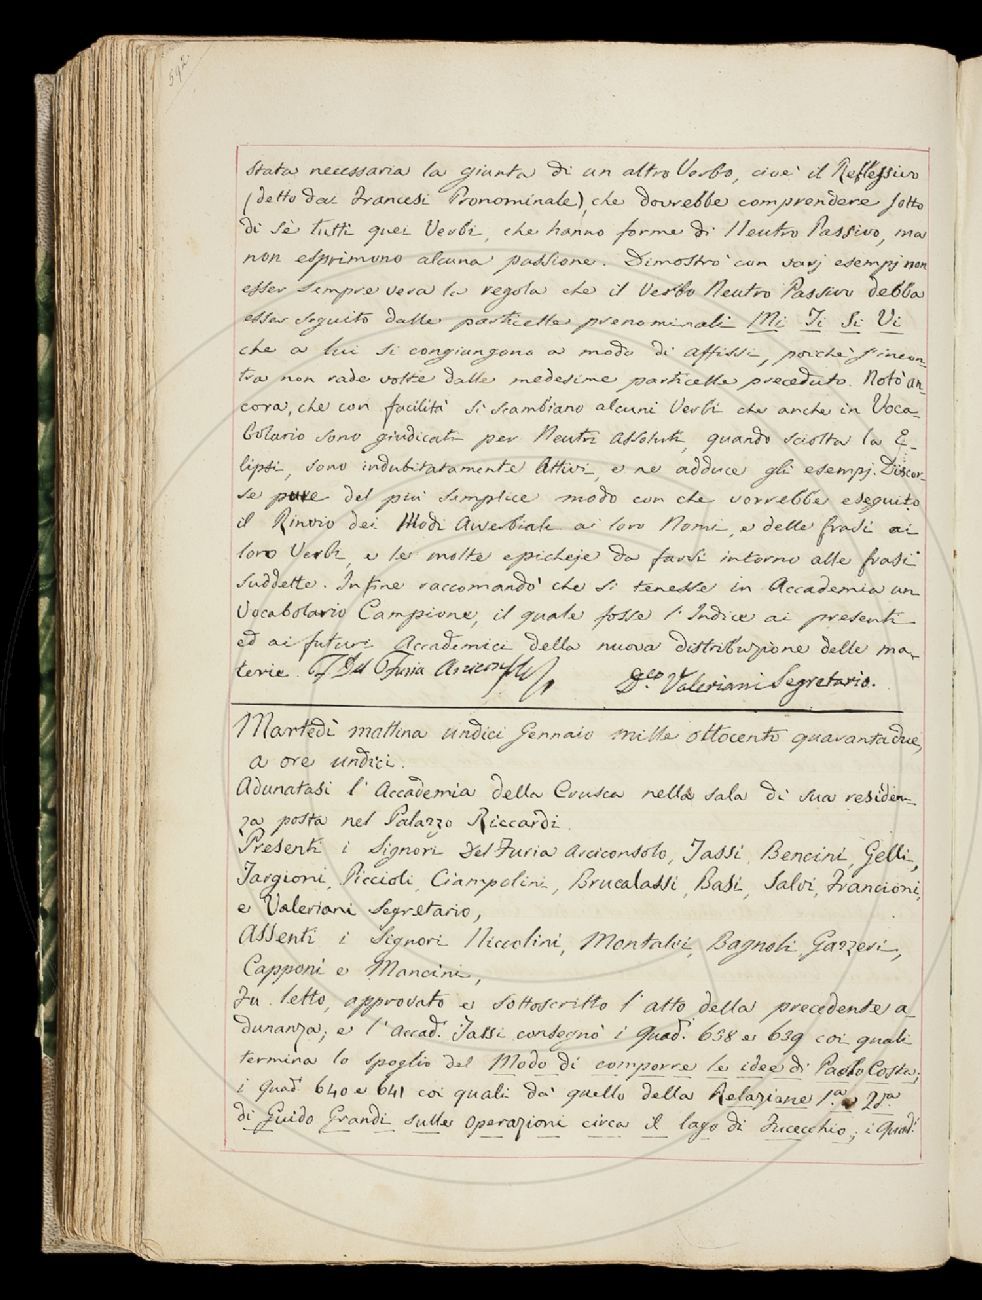 592
stata necessaria la giunta di un altro Verbo, cioè il Reflessivo
(detto dai Francesi Pronominale), che dovrebbe comprendere sotto
di sè tutti quei Verbi, che hanno forme di Neutro Passivo, ma
non esprimono alcuna passione. Dimostrò con varj esempj non
esser sempre vera la regola che il Verbo Neutro Passivo debba
esser seguito dalle particelle prenominali Mi Ti Si Vi
che a lui si congiungono a modo di affissi, poichè s'incon-
tra non rade volte dalle medesime particelle preceduto. Notò an-
cora, che con facilità si scambiano alcuni Verbi che anche in Voca-
bolario sono giudicati per Neutri assoluti, quando sciolta la E-
lipsi, sono indubitatamente Attivi, e ne adduce gli esempj. Discor-
se pure del più semplice modo con che vorrebbe eseguito
il Rinvio dei Modi Avverbiali ai loro Nomi, e delle frasi ai
loro Verbi, e le molte epicheje da farsi intorno alle frasi
suddette. Infine raccomandò che si tenesse in Accademia un
Vocabolario Campione, il quale fosse l'Indice ai presenti
ed ai futuri Accademici della nuova distribuzione delle ma-
terie. F. Del Furia Arciconsolo Dco. Valeriani Segretario.
Martedì mattina undici Gennaio mille ottocento quarantadue,
a ore undici.
Adunatasi l'Accademia della Crusca nella sala di sua residen-
za posta nel Palazzo Riccardi.
Presenti i Signori Del Furia Arciconsolo, Tassi, Bencini, Gelli,
Targioni, Piccioli, Ciampolini, Brucalassi, Basi, Salvi, Francioni,
e Valeriani Segretario,
Assenti i Signori Niccolini, Montalvi, Bagnoli, Gazzeri,
Capponi e Mancini,
Fu letto, approvato e sottoscritto l'atto della precedente a-
dunanza; e l'Accad. Tassi consegnò i Quad. 638 e 639 coi quali
termina lo spoglio del Modo di comporre le idee di Paolo Costa;
i Quad. 640 e 641 coi quali dà quello della Relazione 1.a e 2da
di Guido Grandi sulle Operazioni circa il lago di Fucecchio; i Quad.